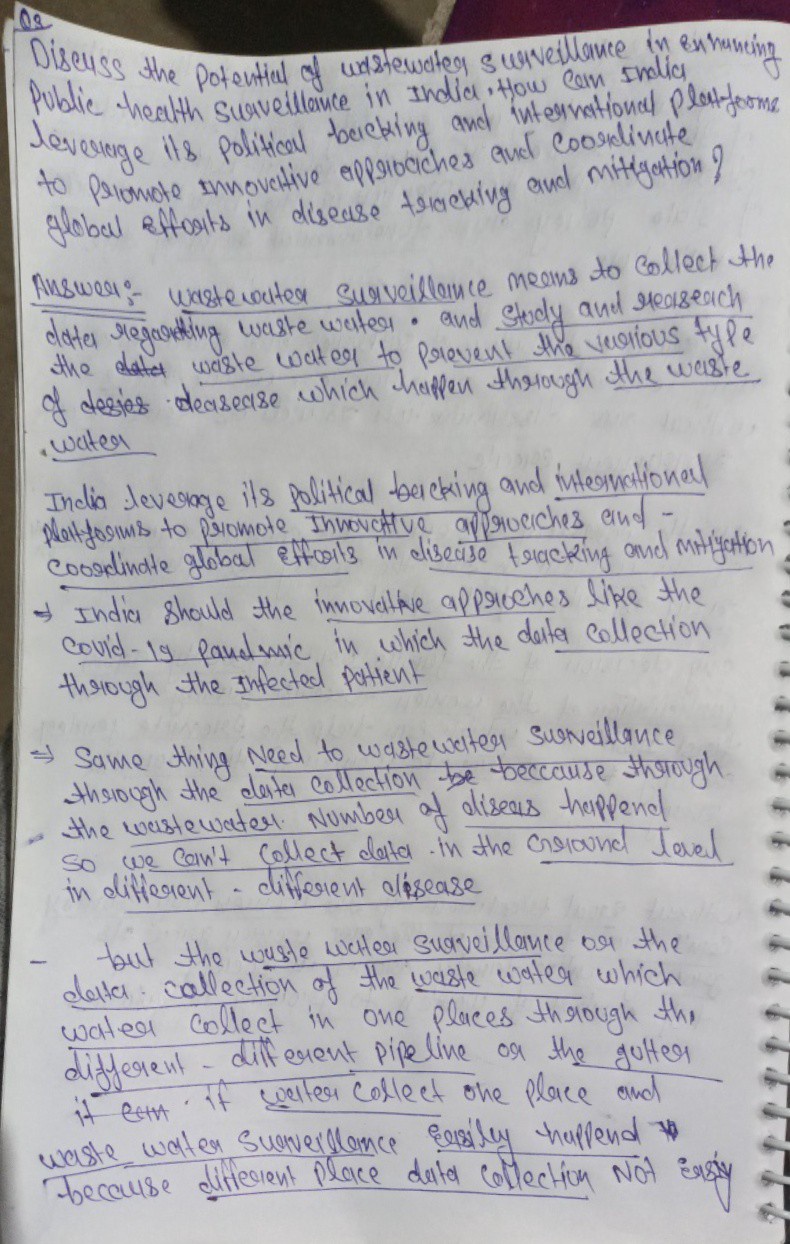 Q2
Discuss the Potential of wastewater surveillance in enhancing
Public health surveillance in India. How can India
leverage its political backing and international platforms
to promote innovative approaches and coordinate
global efforts in disease tracking and mitigation?
Answer:- wastewater surveillance means to collect the
data regarding waste water. and study and reaseach
the data waste water to prevent the various type
of desies deasease which happen through the waste
water
India leverage its political backing and international
platforms to promote innovative approaches and -
coordinate global efforts in disease tracking and mitigation
→ India should the innovative approches like the
covid-19 pandmic in which the data collection
through the infected patient
⇒ Same thing Need to wastewater surveillance
through the data collection be beccause through
the wastewater. Number of diseas happend
so we can't collect data in the Ground level
in different - different disease
- but the waste water surveillance or the
data collection of the waste water which
water collect in one places through the
different - different pipeline or the gutter
it can if water collect one place and
waste water surveillance easily happend
because different place data collection Not easiy